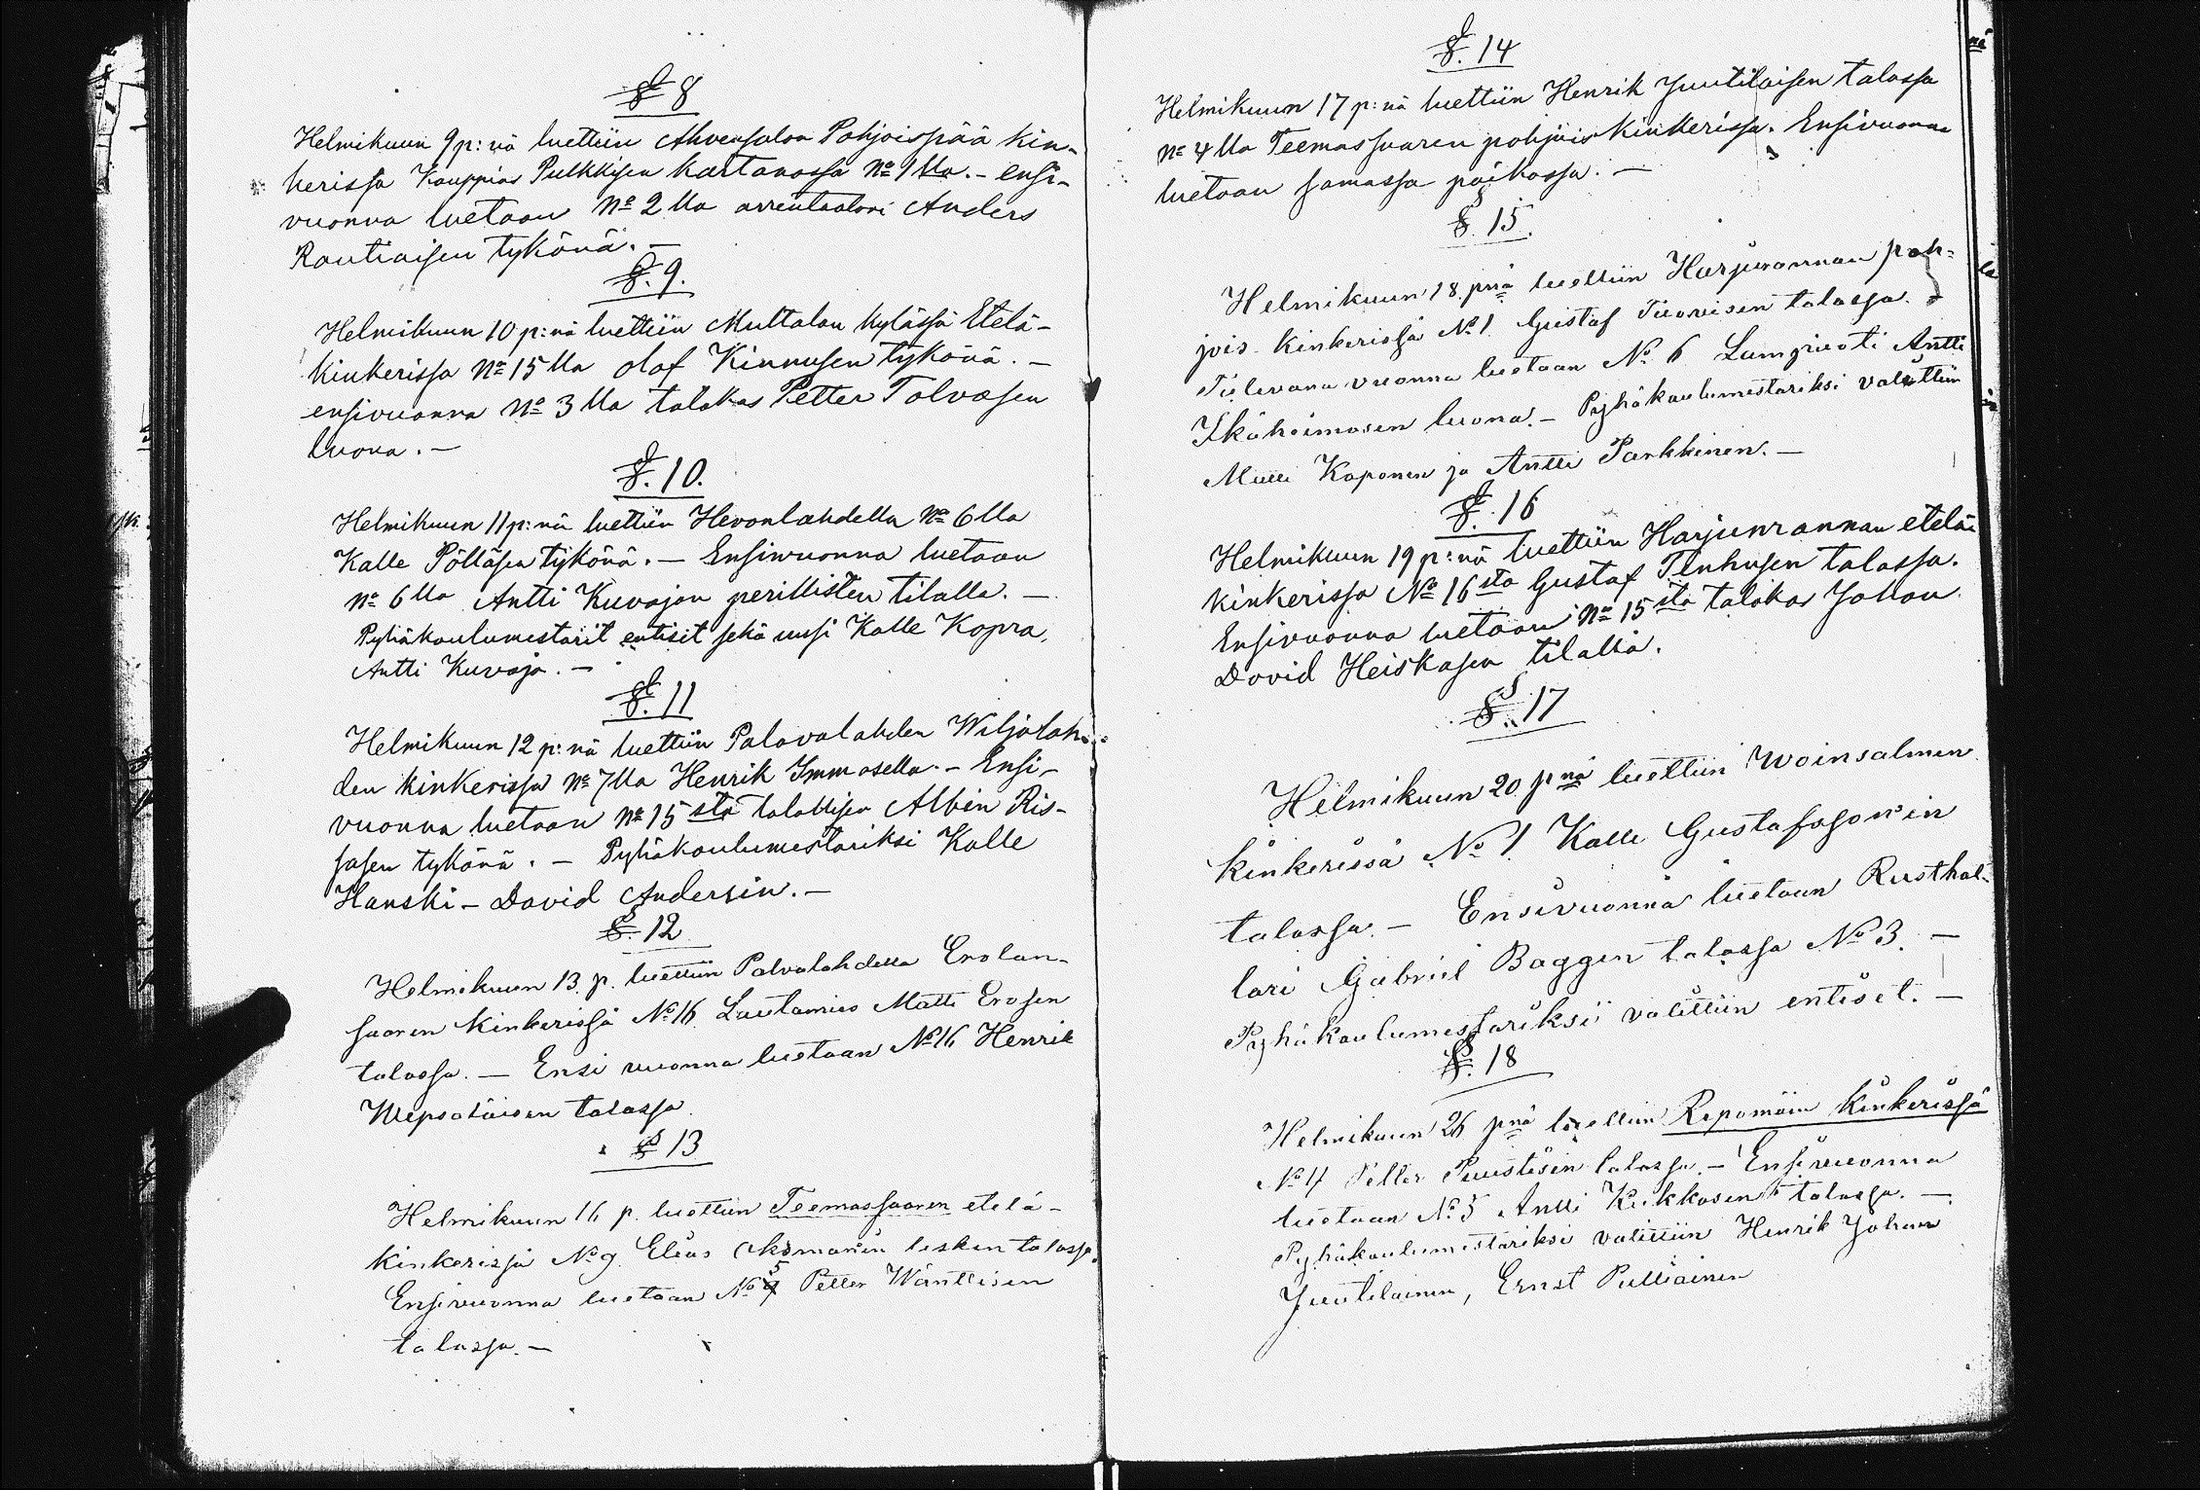 § 8
Helmikuun 9 p:nä luettiin Ahvensalon Pohjoispää kin-
kerissa Kauppias Pulkkisen kartanossa No 1 lla. - ensi-
vuonna luetaan No 2 lla arrentaatori Anders
Rautiaisen tykönä. -
§. 9.
Helmikuun 10 p:nä luettiin Multalan kylässä Etelä-
kinkerissa No 15 lla Olof Kinnusen tykönä. -
ensivuonna No 3 lla talokas Petter Tolvasen
luona. -
§. 10.
Helmikuun 11 p:nä luettiin Hevonlahdella No 6 lla
Kalle Pölläsen tykönä. - Ensivuonna luetaan
No 6 lla Antti Kuvajan perillisten tilalla. -
Pyhäkoulumestarit entiset sekä uusi Kalle Kopra,
Antti Kuvaja. -
§. 11
Helmikuun 12 p:nä luettiin Palovalahden Wiljolah-
den kinkerissa No 7 lla Henrik Immosella. - Ensi-
vuonna luetaan No 15 sta talollisen Albin Ris-
sasen tykönä. - Pyhäkoulumestariksi Kalle
Hanski - David Andersin. -
§. 12
Helmikuun 13. p. luettiin Palvalahdella Erolan-
saaren kinkerissä No 16 Lautamies Matti Erosen
talossa. - Ensi vuonna luetaan No 16 Henrik
Wepsäläisen talossa.
§ 13
Helmikuun 16 p. luettiin Teemassaaren etelä-
kinkerissä No 9 Elias lesken talossa.
Ensivuonna luetaan No 5 Petter Wänttisen
talossa. -
§. 14
Helmikuun 17 p:nä luettiin Henrik Juutilaisen talossa
No 4 lla Teemassaaren pohjois kinkerissa. Ensivuonna
luetaan samassa paikassa. -
§. 15.
Helmikuun 18. pnä luettiin Harjurannan poh-
jois kinkerissä No 1 Gustaf Tuovisen talossa. -
Tulevana vuonna luetaan No 6 Lampuoti Antti
Ikäheimosen luona. - Pyhäkoulumestariksi valittiin
Matti Koponen ja Antti Parkkinen. -
§. 16
Helmikuun 19 p:nä luettiin Harjunrannan etelä
kinkerissa No 16 sta Gustaf Tenhusen talossa.
Ensivuonna luetaan No 15 sta talokas Johan
David Heiskasen tilalla.
§. 17
Helmikuun 20. pnä luettiin Woinsalmen
kinkerissä No 1 Kalle Gustafssonin
talossa. - Ensivuonna luetaan Rusthol-
lari Gabriel Baggen talossa No 3. -
Pyhäkoulumestariksi valittiin entiset. -
§. 18
Helmikuun 26 pnä luettiin Repomäin kinkerissä
No 4 Petter Puustisen talossa. - Ensivuonna
luetaan No 5 Antti Kukkosen talossa. -
Pyhäkoulumestariksi valittiin Henrik Johan
Juutilainen, Ernst Pulliainen